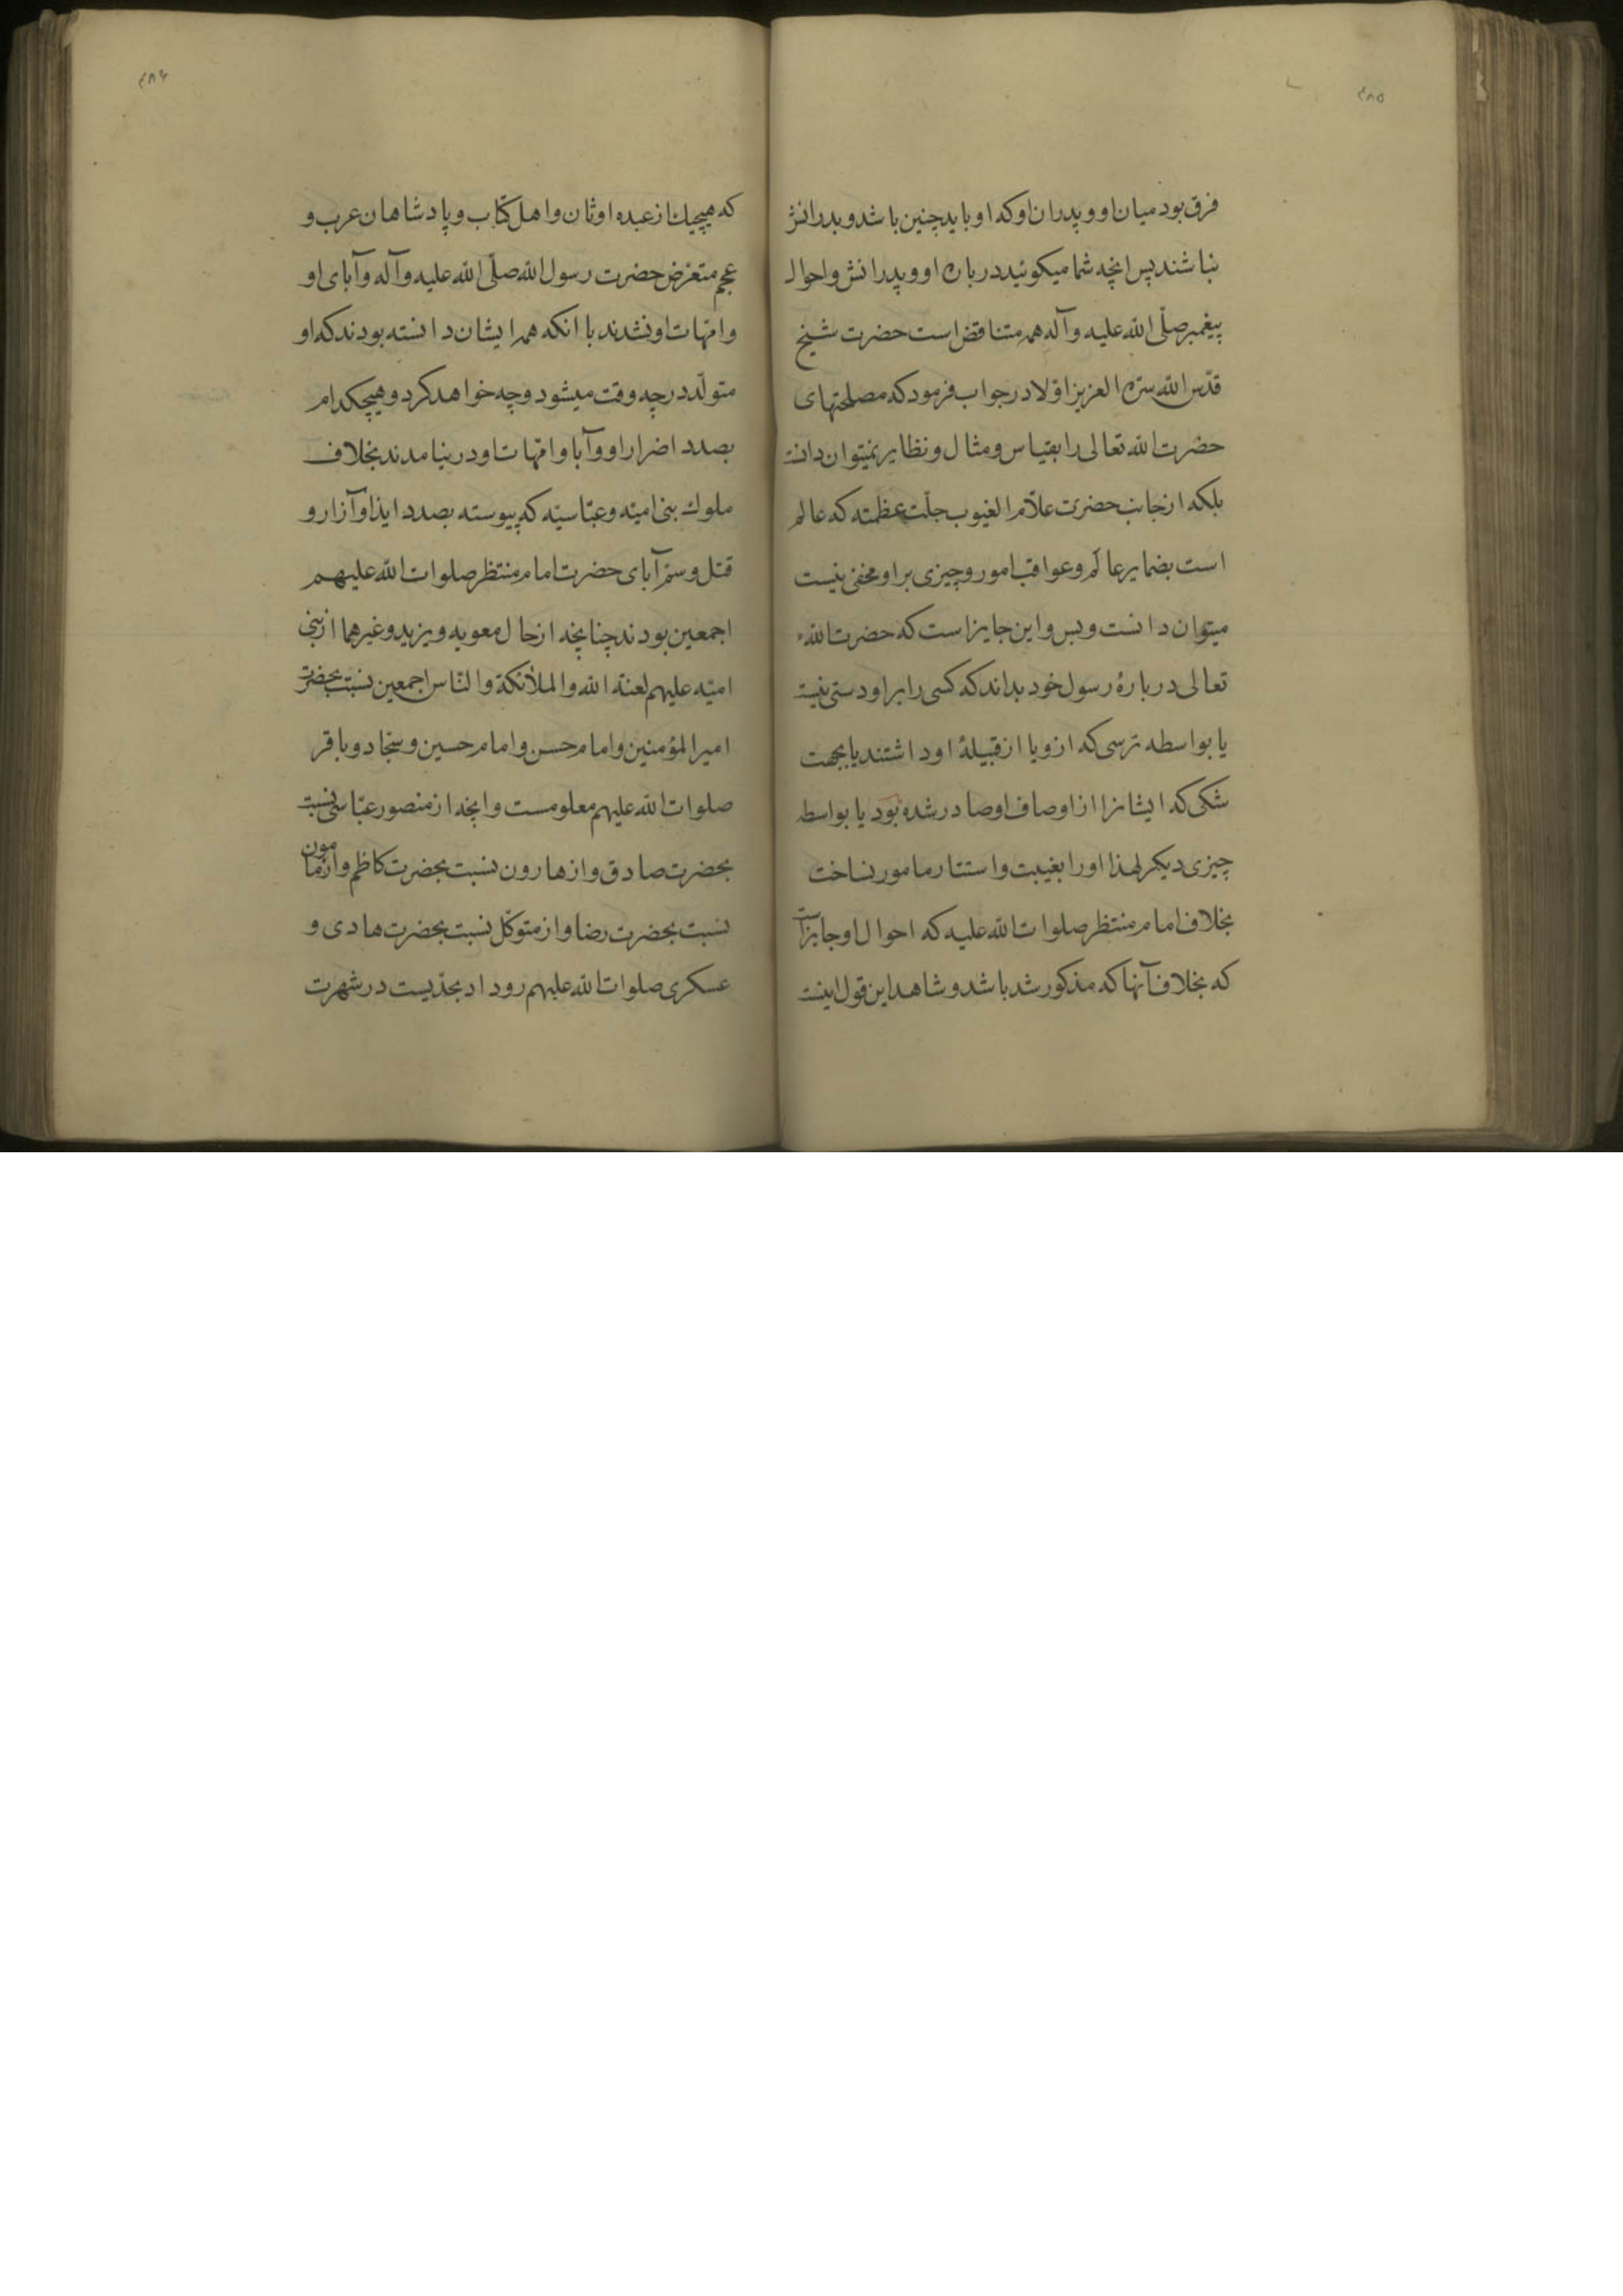 ۴۸۵
فرق بود میان او و پدران او که او باید چنین باشد و پدرانش
نباشند پس انچه شما میکوئید در باره او و پدرانش و احوال
پیغمبر صلّی الله علیه و آله همه متناقض است حضرت شیخ
قدّس الله سرّه العزیز اوّلا در جواب فرمود که مصلحتهای
حضرت الله تعالی را بقیاس و مثال و نظایر نمیتوان دانست
بلکه از جانب حضرت علاّم الغیوب جلّت عظمته که عالم
است بضمایر عالَم و عواقب امور و چیزی بر او مخفی نیست
میتوان دانست و بس و این جایز است که حضرت الله
تعالی در بارهٔ رسول خود بداند که کسی را بر او دستی نیست
یا بواسطه ترسی که ازو یا از قبیلهٔ او داشتند یا بجهت
شکی که ایشانرا از اوصاف او صادر شده بود یا بواسطه
چیزی دیکر لهذا او را بغیبت و استتار مامور نساخت
بخلاف امام منتظر صلوات الله علیه که احوال او جایز است
که بخلاف آنها که مذکور شد باشد و شاهد این قول اینست
۴۸۶
که هیچیك از عبده اوثان و اهل کتاب و پادشاهان عرب و
عجم متعرّض حضرت رسول الله صلّی الله علیه و آله و آبای او
و امّهات او نشدند با انکه همه ایشان دانسته بودند که او
متولّد در چه وقت میشود و چه خواهد کرد و هیچکدام
بصدد اضرار او و آبا و امّهات او در نیامدند بخلاف
ملوك بنی امیّه و عبّاسیّه که پیوسته بصدد ایذا و آزار و
قتل و سمّ آبای حضرت امام منتظر صلوات الله علیهم
اجمعین بودند چنانچه از حال معویه و یزید و غیرهما از بنی
امیّه علیهم لعنة الله والملائکة والنّاس اجمعین نسبت بحضرت
امیر المؤمنین و امام حسن و امام حسین و سجّاد و باقر
صلوات الله علیهم معلومست و انچه از منصور عبّاسی نسبت
بحضرت صادق و از هارون نسبت بحضرت کاظم و از مامون
نسبت بحضرت رضا و از متوکّل نسبت بحضرت هادی و
عسکری صلوات الله علیهم رو داد بحدّیست در شهرت